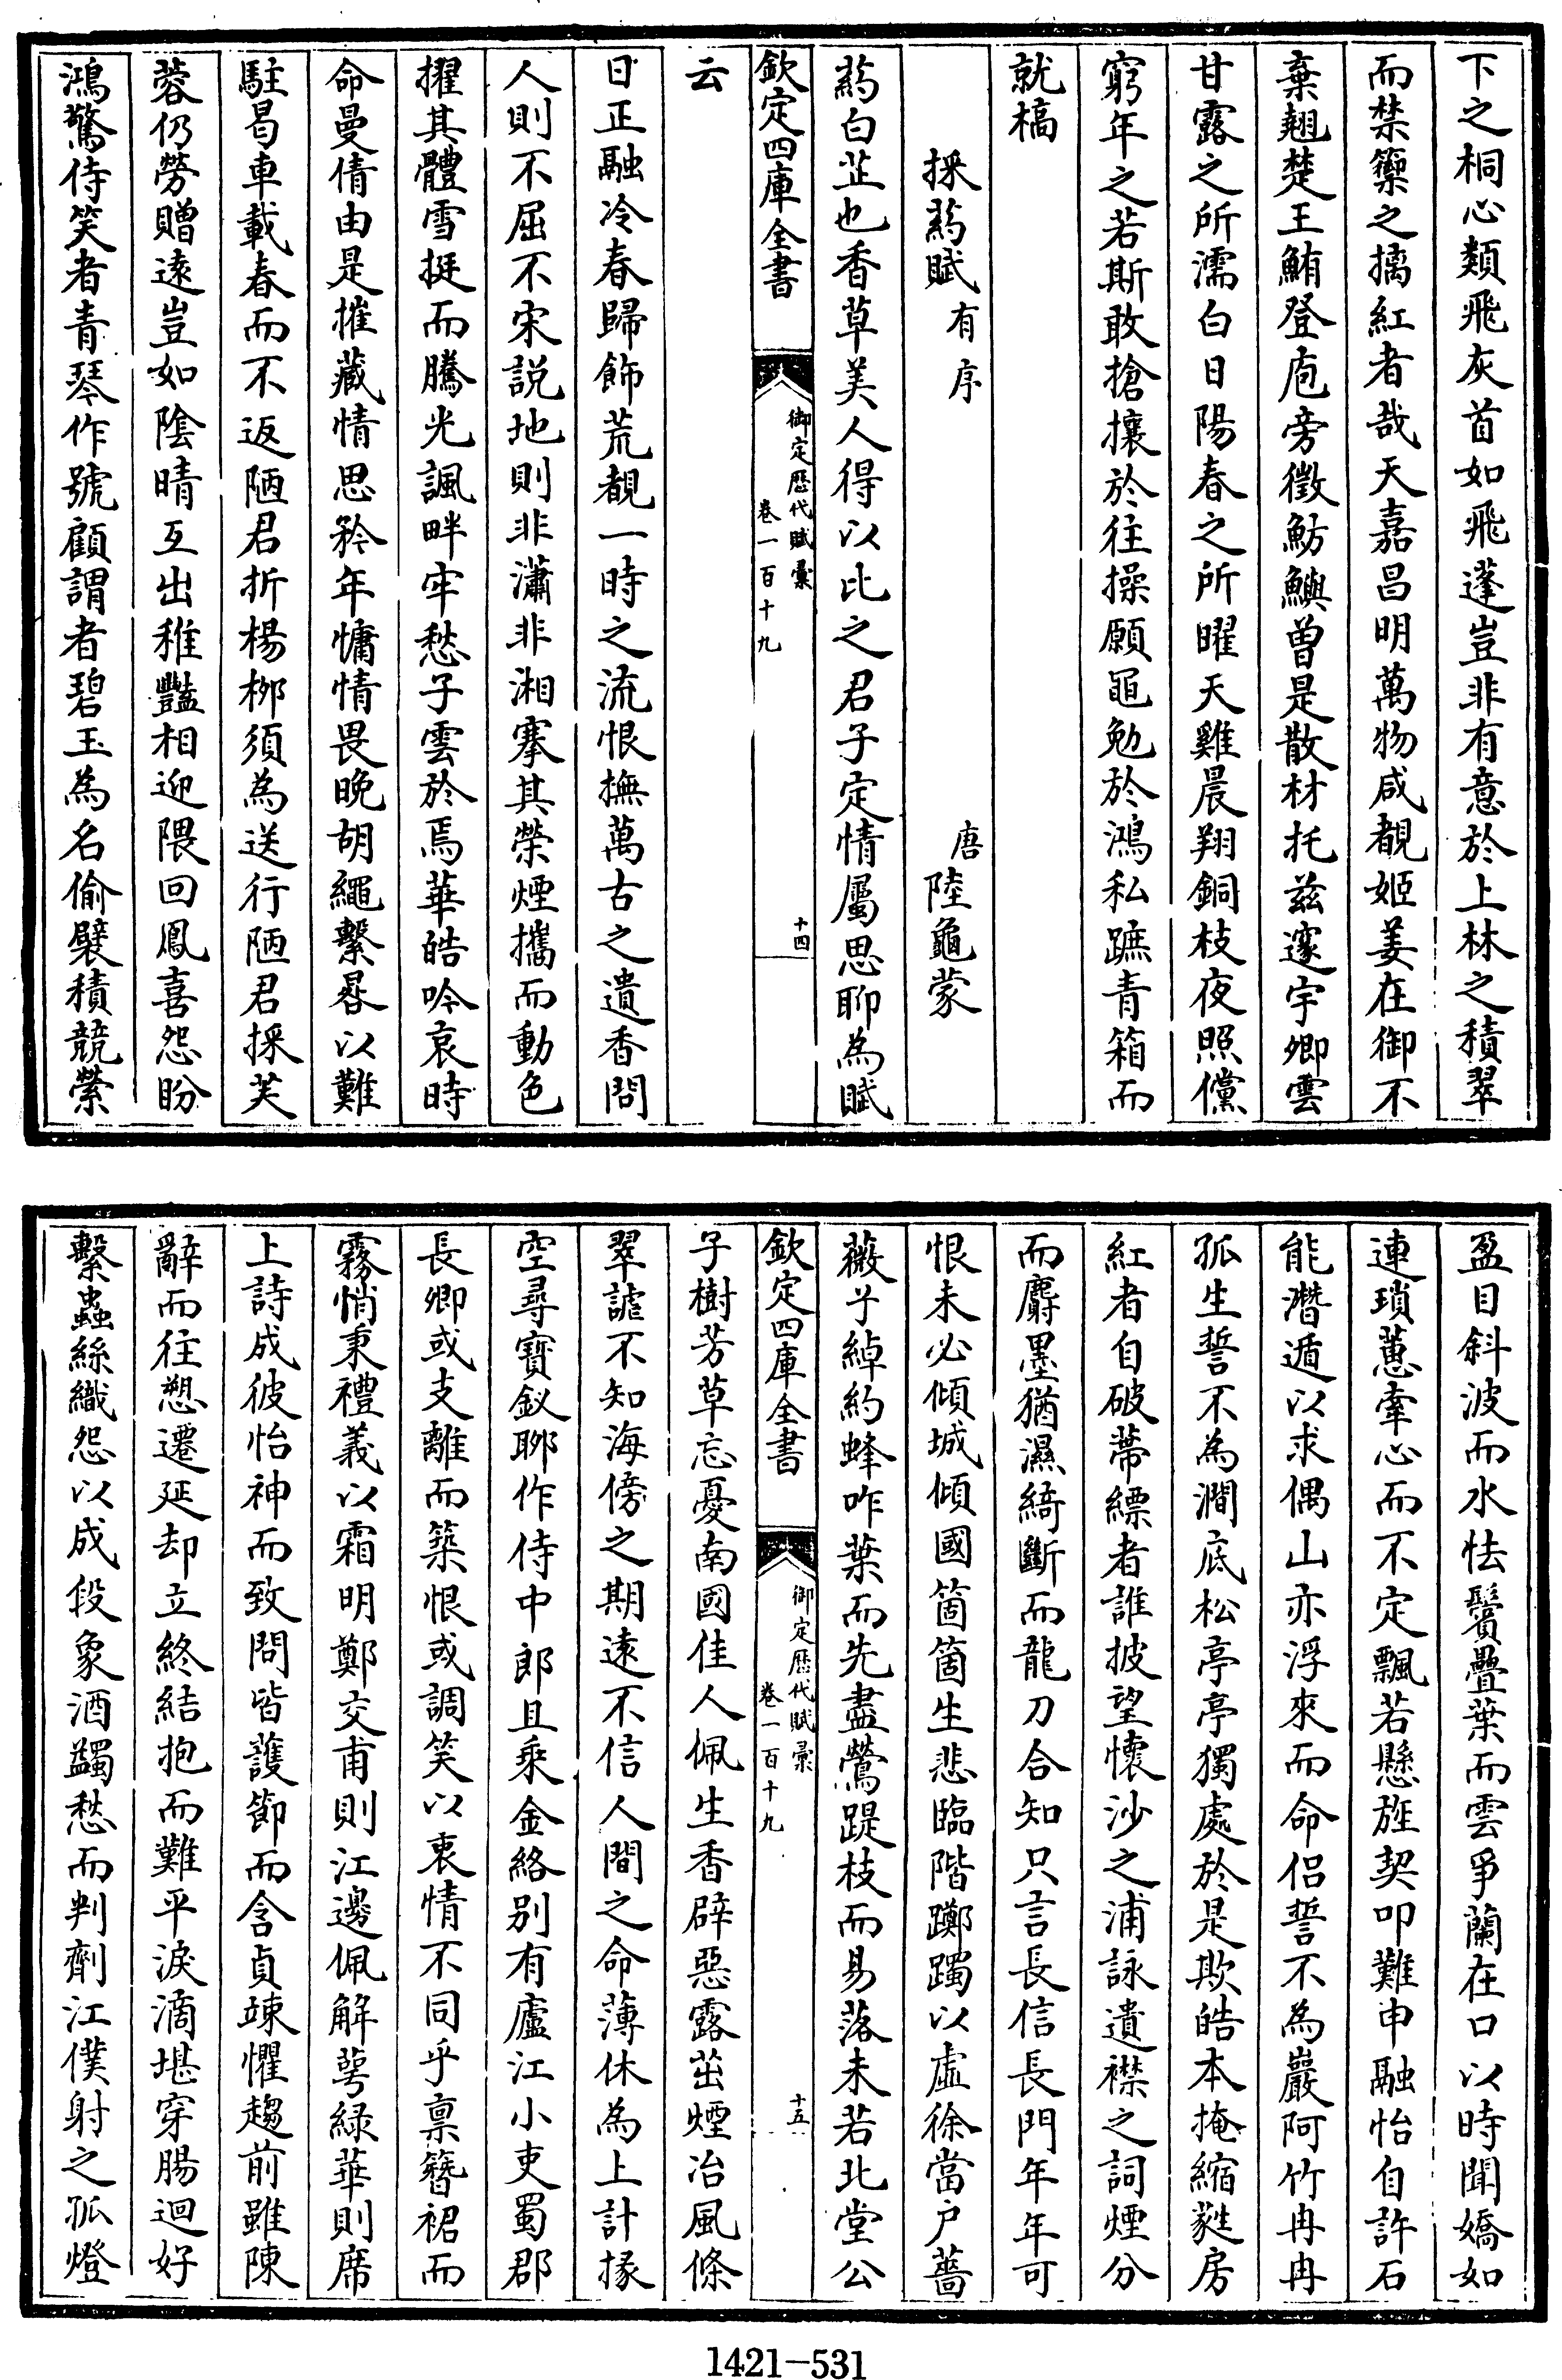 下之桐心類飛灰首如飛蓬豈非有意於上林之積翠
而禁籞之摛紅者哉天嘉昌明萬物咸覩姬姜在御不
棄翹楚王鮪登庖旁徵魴鱮曾是散材托兹邃宇卿雲
甘露之所濡白日陽春之所曜天雞晨翔銅枝夜照儻
窮年之若斯敢搶攘於往操願黽勉於鴻私蹠青箱而
就槁
採葯賦有序
唐陸龜蒙
葯白芷也香草美人得以比之君子定情屬思聊為賦
欽定四庫全書
御定歷代賦彙
卷一百十九
十四
云
日正融冷春歸飾荒覩一時之流恨撫萬古之遺香問
人則不屈不宋説地則非瀟非湘搴其榮煙攜而動色
擢其體雪挺而騰光諷畔牢愁子雲於焉華皓吟哀時
命曼倩由是摧藏情思矜年慵情畏晚胡繩繫晷以難
駐曷車載春而不返陋君折楊柳須為送行陋君採芙
蓉仍勞贈遠豈如陰晴互出稚豔相迎隈回鳳喜怨盼
鴻驚侍笑者青琴作號顧謂者碧玉為名偷襞積競縈
盈目斜波而水怯鬢疊葉而雲爭蘭在口以時聞嬌如
連瑣蕙牽心而不定飄若懸旌契叩難申融怡自許石
能潛遁以求偶山亦浮來而命侣誓不為巖阿竹冉冉
孤生誓不為澗底松亭亭獨處於是欺皓本掩縮蕤房
紅者自破蔕縹者誰披望懷沙之浦詠遺襟之詞煙分
而麝墨猶濕綺斷而龍刀合知只言長信長門年年可
恨未必傾城傾國箇箇生悲臨階躑躅以虛徐當户薔
薇兮綽約蜂咋葉而先盡鶯踶枝而易落未若北堂公
欽定四庫全書
御定歷代賦彙
卷一百十九
十五
子樹芳草忘憂南國佳人佩生香辟惡露茁煙冶風條
翠謔不知海傍之期遠不信人間之命薄休為上計掾
空尋寶釵聊作侍中郎且乘金絡别有廬江小吏蜀郡
長卿或支離而築恨或調笑以衷情不同乎禀簪裾而
霧悄秉禮義以霜明鄭交甫則江邊佩解萼緑華則席
上詩成彼怡神而致問皆護節而含貞竦懼趨前雖陳
辭而往愬遷延却立終結抱而難平淚滴堪穿腸迴好
繫蟲絲織怨以成段象酒蠲愁而判劑江僕射之孤燈
1421-531